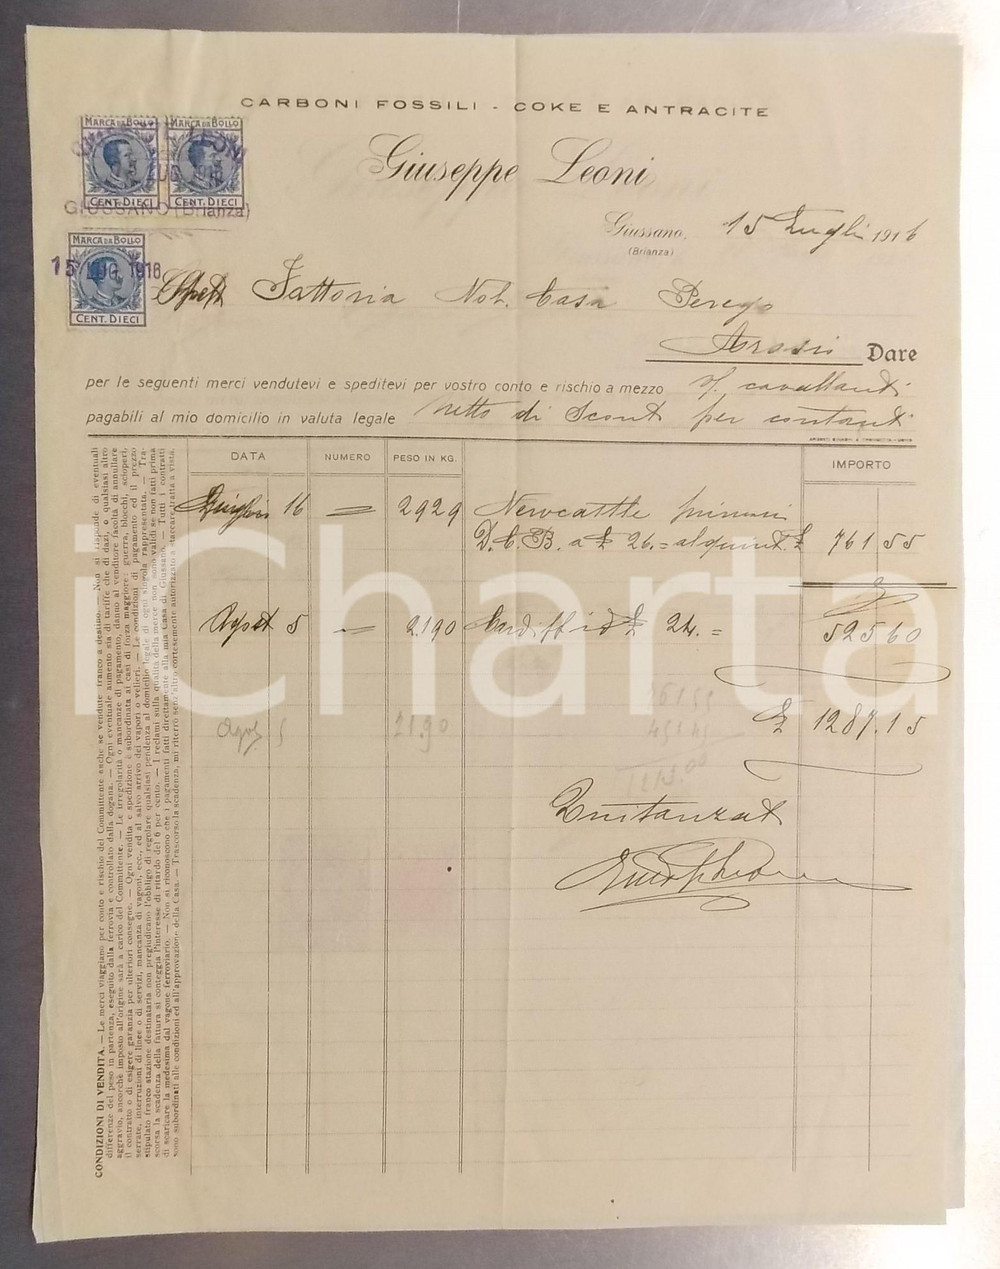 CARBONI FOSSILI - COKE E ANTRACITE
Giuseppe Leoni
MARCA DA BOLLO
MARCA DA BOLLO
CENT. DIECI
CENT. DIECI
LEONI
LUG. 1916
GIUSSANO (Brianza)
MARCA DA BOLLO
15 LUG. 1916
CENT. DIECI
Giussano, 15 Luglio 1916
(Brianza)
Spett Fattoria Nob. Casa Perego
Arosio Dare
per le seguenti merci vendutevi e speditevi per vostro conto e rischio a mezzo cavallanti
pagabili al mio domicilio in valuta legale netto di Sconto per contanti
DATA NUMERO PESO IN KG. IMPORTO
16 = 2929 Newcastle primari
D.C.B. a £ 26.= al quint. £ 761 55
Agost 5 2190 Cardiff id £ 24.= 525 60
£ 1287.15
Agost 5 2190
Quitanzat
CONDIZIONI DI VENDITA. — Le merci viaggiano per conto e rischio del Committente anche se vendute franco a destino. — Non si risponde di eventuali
differenze del peso in partenza, eseguito dalla ferrovia e controllato dalla dogana. — Ogni eventuale aumento sia di tariffe che di dazi, o qualsiasi altro
aggravio, ancorchè imposto all'origine sarà a carico del Committente. — Le irregolarità o mancanze di pagamento, danno al venditore facoltà di annullare
il contratto o di esigere garanzia per ulteriori consegne. — Ogni vendita e spedizione è subordinata ai casi di forza maggiore: guerra, blocchi, scioperi,
serrate, interruzioni di linee o di servizi, mancanza di vagoni, ecc., ed al salvo arrivo dei vapori o velieri. — Le condizioni di pagamento ed il prezzo
stipulato franco stazione destinataria non pregiudicano l'obbligo di regolare qualsiasi pendenza al domicilio legale di ogni singola rappresentata. — Tra-
scorsa la scadenza della fattura si conteggia l'interesse di ritardo del 6 per cento. — I reclami sulla qualità della merce non sono validi se non fatti prima
di scaricare la medesima dal vagone ferroviario. — Non si riconoscono che i pagamenti fatti direttamente alla mia Casa di Giussano. — Tutti i contratti
sono subordinati alle condizioni ed all'approvazione della Casa. — Trascorso la scadenza, mi riterrò senz'altro cortesemente autorizzato a staccare tratta a vista.
iCharta